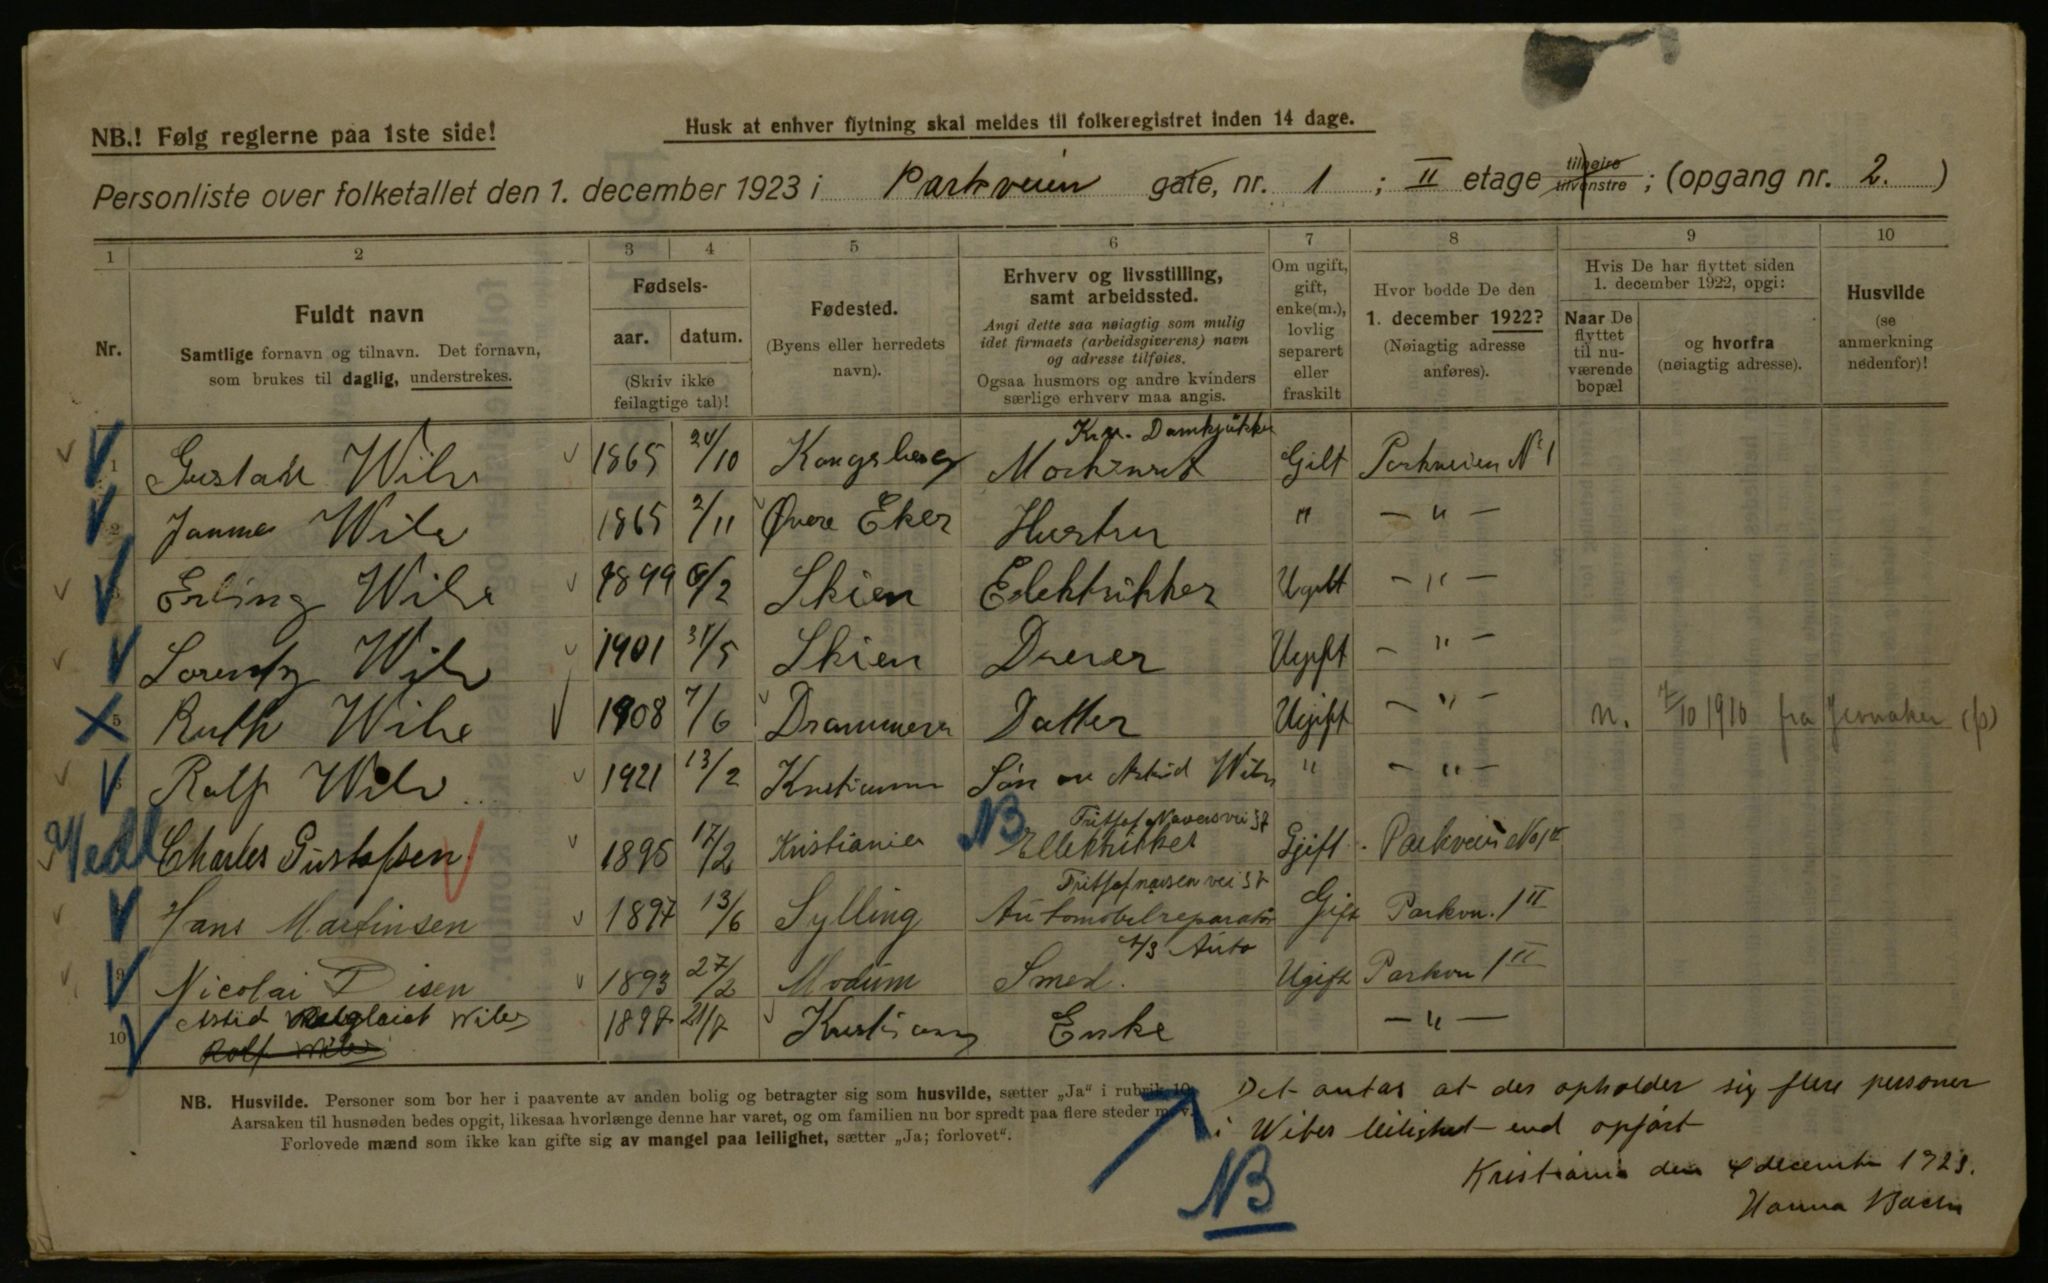 NB.! Følg reglerne paa 1ste side!
Husk at enhver flytning skal meldes til folkeregistret inden 14 dage.
Personliste over folketallet den 1. december 1923 i Parkveien gate, nr. 1 ; II etage tilhøire tilvenstre ; (opgang nr. 2. )
1 2 3 4 5 6 7 8 9 10
Nr.
Fuldt navn
Samtlige fornavn og tilnavn. Det fornavn,
som brukes til daglig, understrekes.
Fødsels-
aar. datum.
(Skriv ikke
feilagtige tal)!
Fødested.
(Byens eller herredets
navn).
Erhverv og livsstilling,
samt arbeidssted.
Angi dette saa nøiagtig som mulig
idet firmaets (arbeidsgiverens) navn
og adresse tilføies.
Ogsaa husmors og andre kvinders
særlige erhverv maa angis.
Om ugift,
gift,
enke(m.),
lovlig
separert
eller
fraskilt
Hvor bodde De den
1. december 1922?
(Nøiagtig adresse
anføres).
Hvis De har flyttet siden
1. december 1922, opgi:
Naar De
flyttet
til nu-
værende
bopæl
og hvorfra
(nøiagtig adresse).
Husvilde
(se
anmerkning
nedenfor)!
Kra. Damkjøkken
1 Gustav 1865 24/10 Kongsberg Gift Parkveien No 1
2 1865 2/11 Øvre Eker Hustru " — " —
Erling 1899 6/2 Skien Elektriker Ugift — " —
Lorentz 1901 31/5 Skien Dreier Ugift — " —
5 Ruth 1908 7/6 Drammen Datter Ugift — " — n. 7/10 1910 fra Jevnaker (p)
Rolf 1921 13/2 Kristiania Søn av Astrid " — " —
NB
Charles Gustafsen 1895 17/2 Kristiania Ellektrikker Gjift Parkveien No 1 II
Hans Martinsen 1897 13/6 Sylling Automobilreparatør Gift Parkvn. 1 II
A/S Auto
9 Nicolai 1893 27/2 Modum Smed. Ugift Parkvn 1 II
10 Astrid 1897 21/7 Kristiania Enke — " —
Rolf
NB. Husvilde. Personer som bor her i paavente av anden bolig og betragter sig som husvilde, sætter „Ja“ i rubrik 10.
Aarsaken til husnøden bedes opgit, likesaa hvorlænge denne har varet, og om familien nu bor spredt paa flere steder m. v.
Forlovede mænd som ikke kan gifte sig av mangel paa leilighet, sætter „Ja; forlovet“.
Det antas at der opholder sig flere personer
i leilighet end opført
Kristiania den 4 december 1923.
Hanna
NB